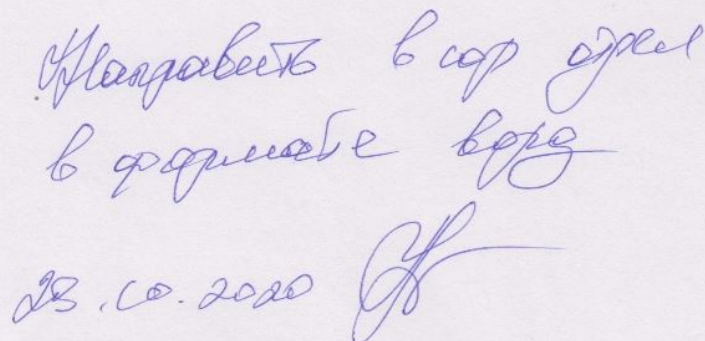 Направить в юр отдел
в формате ворд
23.10.2020